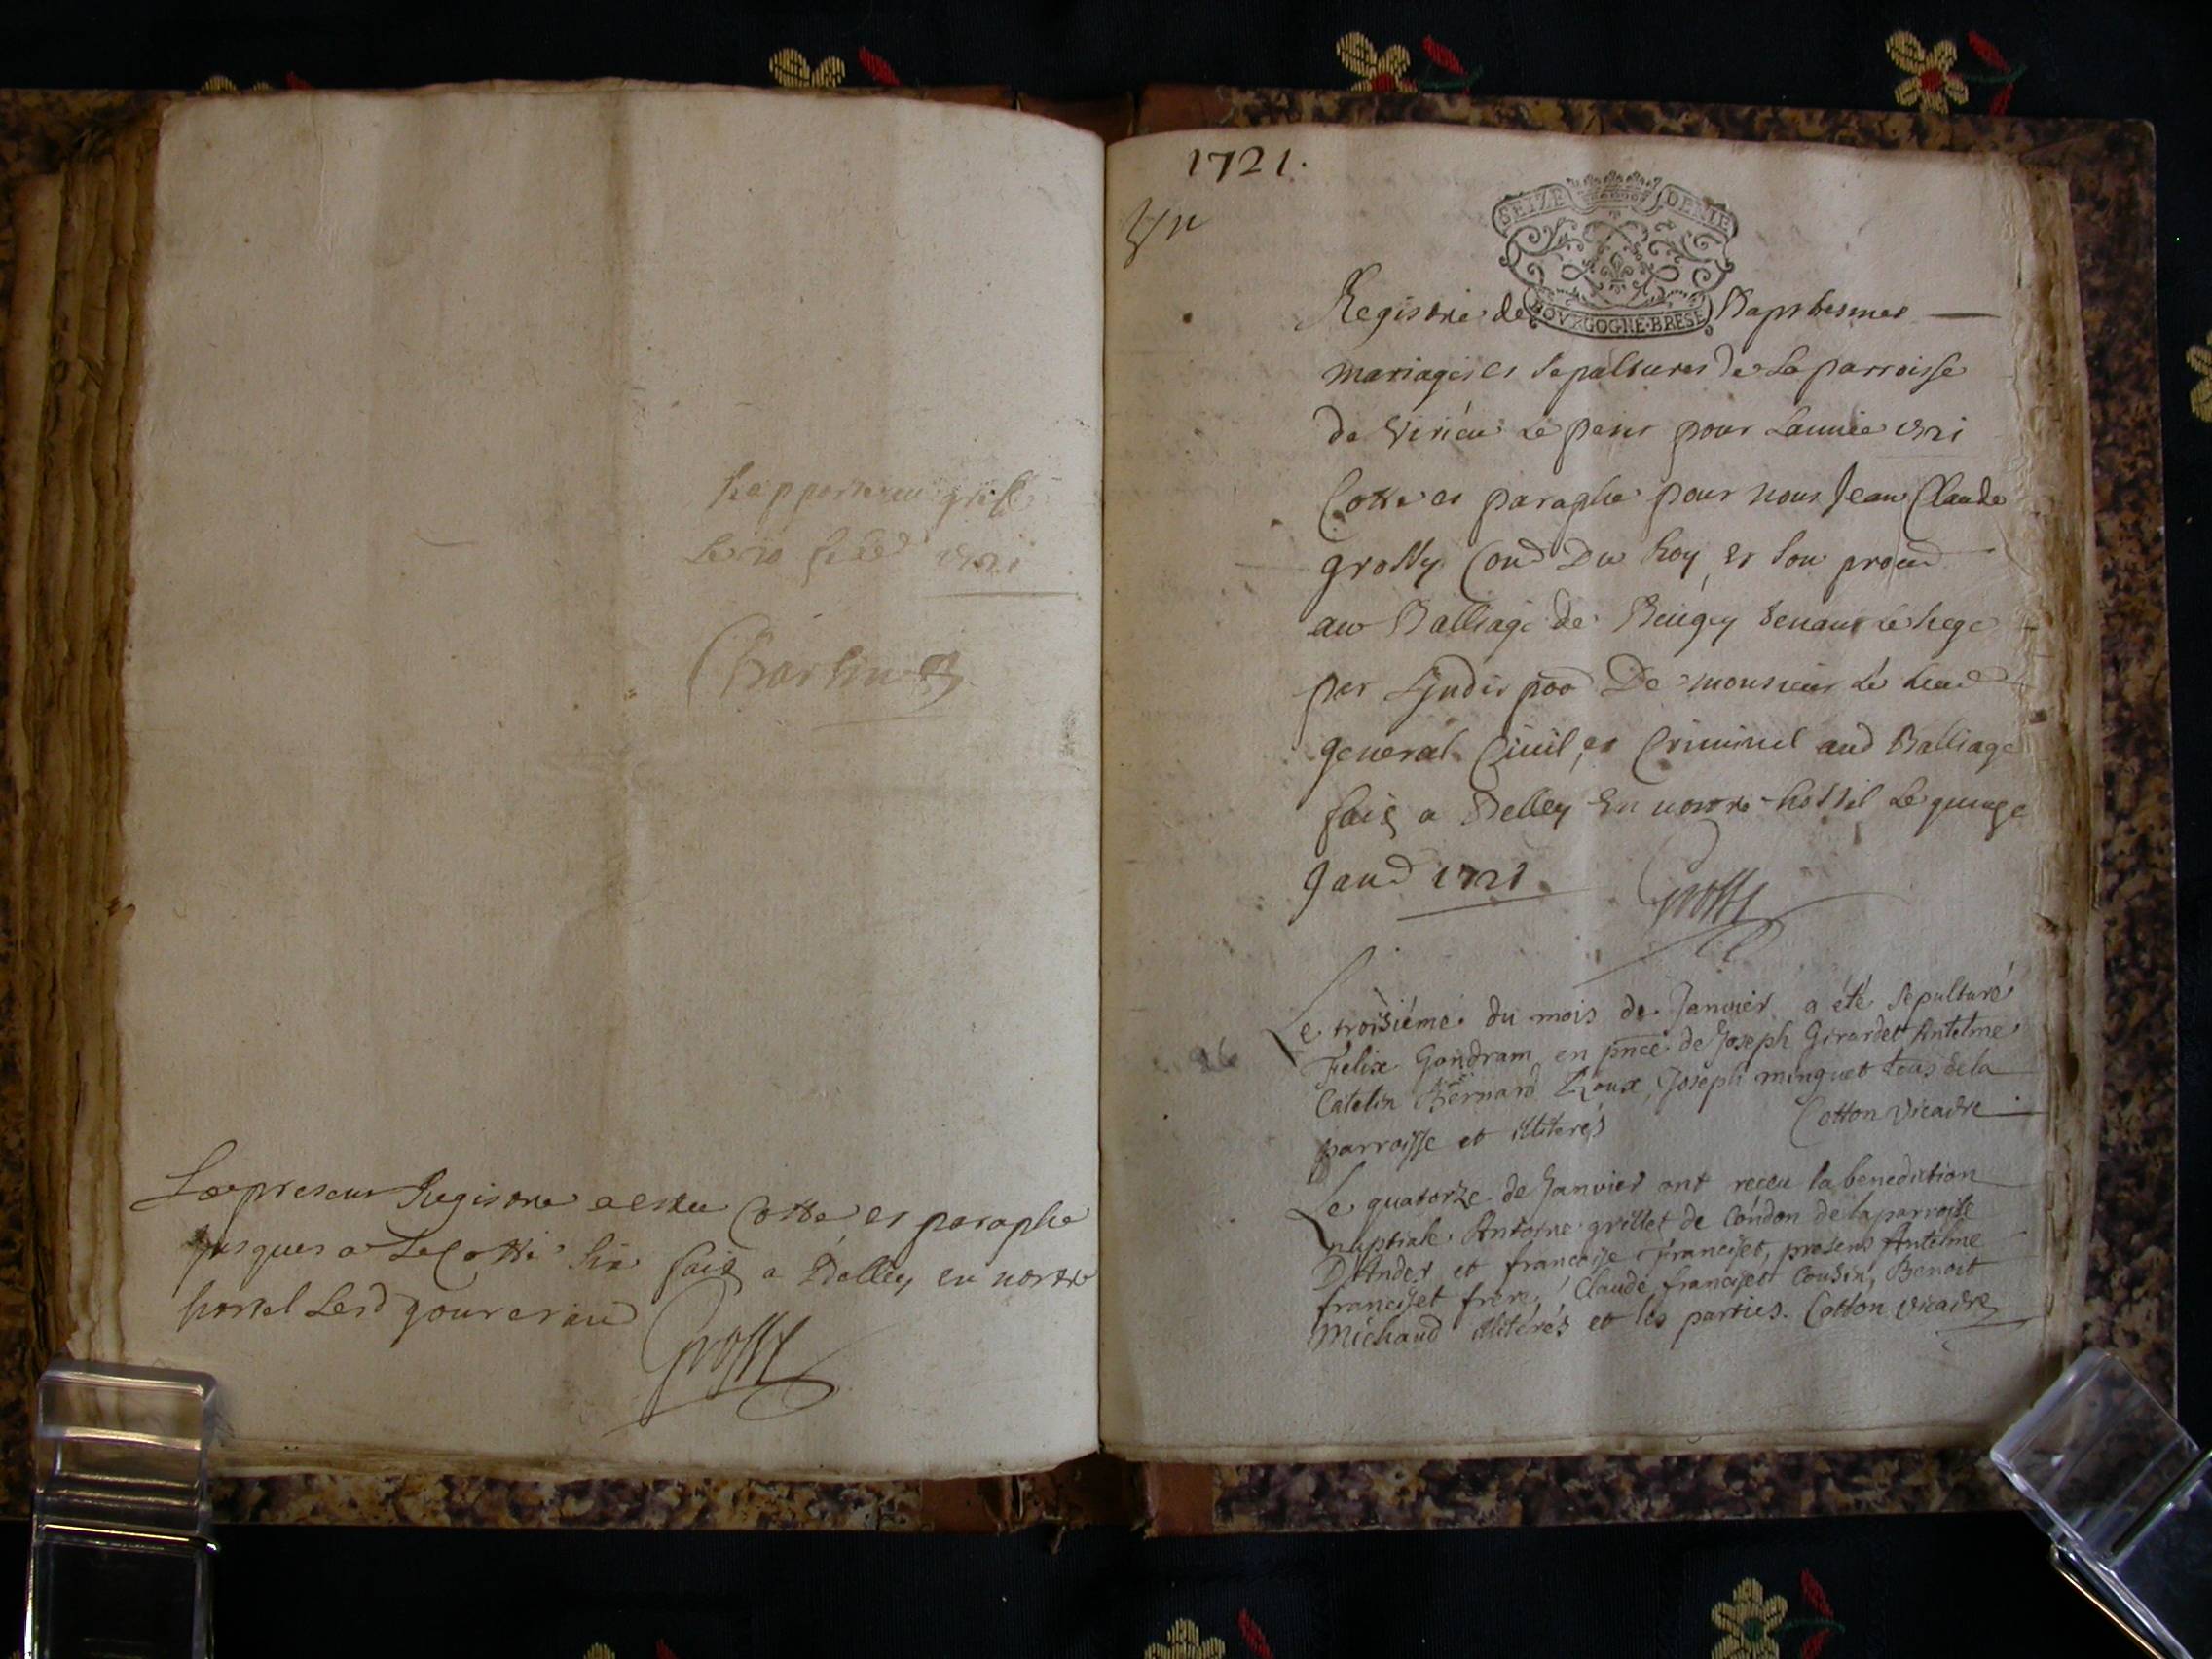 Rapporté au greffe
le 1721
Charlin
Le present Registre a estée Cotté et paraphé
jusques a La Cotte six fait a Belley en nostre
hostel lesd jour et an
Grossy
1721.
SEIZE DENIE
BOVRGOGNE·BRESE
Registre de Baptesmes
mariages et sepultures de La parroisse
de Virieu Le petit pour Lannée 1721
Cotte et paraphe pour nous Jean Claude
grossy Con.d Du Roy, et son procu.d
au Balliage de Beugey tenant le siege
per L'indis po.o De monsieur Le Lieu.d
general Civil, et Criminel aud Balliage
fait a Belley En nostre hostel Le quinze
Jan.d 1721
Grossy
26
Le troisiéme du mois de Janvier a été sepulturé
Felix Gondram en pnce de Joseph Girardet Antelme
Catelin Bernard Roux, Joseph minguet tous de la
parroisse et illiterés Cotton vicaire
Le quatorze de Janvier ont receu la benediction
nuptiale Antoine grillet de Condon de la parroisse
D'Andert et françoise françiset, presens Antelme
françiset frere, Claude françiset Cousin, Benoit
Michaud illiterés et les parties. Cotton vicaire